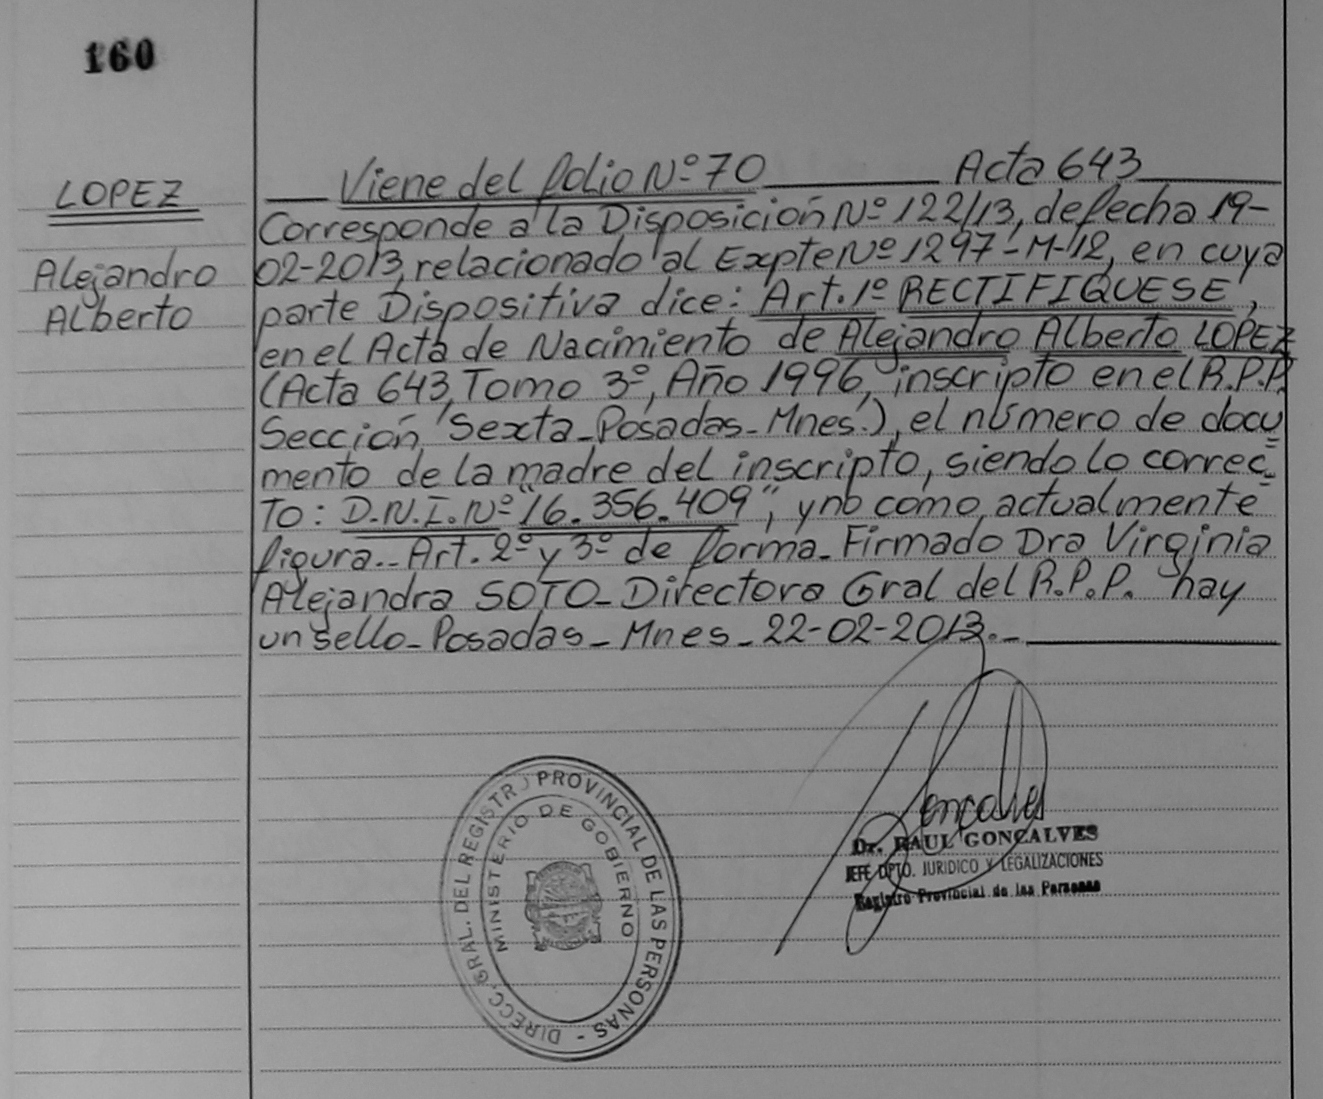 160
LOPEZ
Alejandro
Alberto
Viene del folio Nº 70 Acta 643
Corresponde a la Disposición Nº 122/13, de fecha 19-
02-2013, relacionado al Expte Nº 1297-M-12, en cuya
parte Dispositiva dice: Art. 1º RECTIFIQUESE,
en el Acta de Nacimiento de Alejandro Alberto LOPEZ
(Acta 643, Tomo 3º, Año 1996, inscripto en el R.P.P.
Sección Sexta-Posadas-Mnes.), el número de docu=
mento de la madre del inscripto, siendo lo correc=
To: D.N.I. Nº "16.356.409", y no como actualmente
figura.- Art. 2º y 3º de forma- Firmado Dra Virginia
Alejandra SOTO- Directora Gral del R.P.P. hay
un sello- Posadas- Mnes- 22-02-2013.-
DIRECC. GRAL. DEL REGISTRO PROVINCIAL DE LAS PERSONAS -
MINISTERIO DE GOBIERNO
Goncalves
Dr. RAUL GONCALVES
JEFE DPTO. JURIDICO Y LEGALIZACIONES
Registro Provincial de las Personas